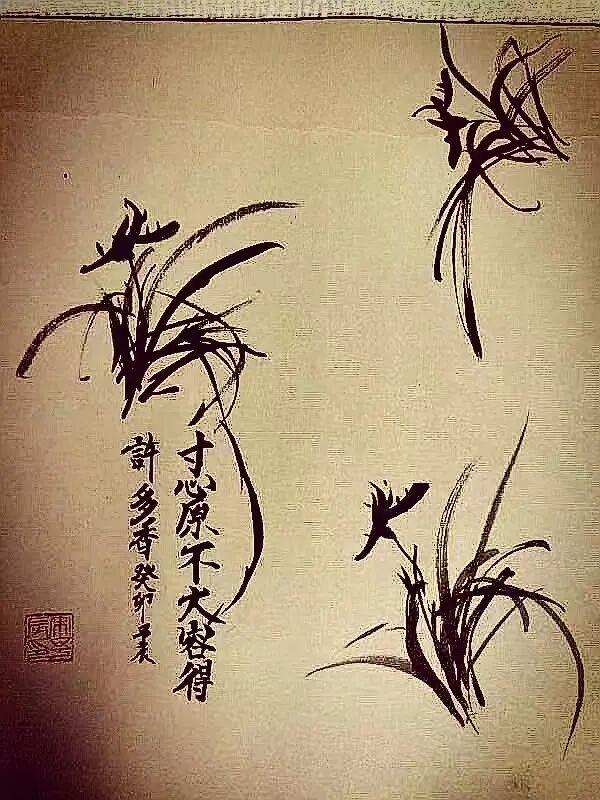 寸心原不大容得
許多香 癸卯